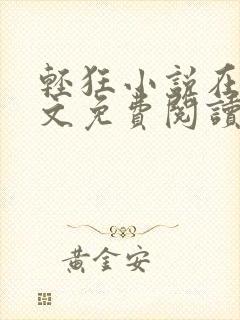 輕狂小說在
文免費閱讀
黃金安